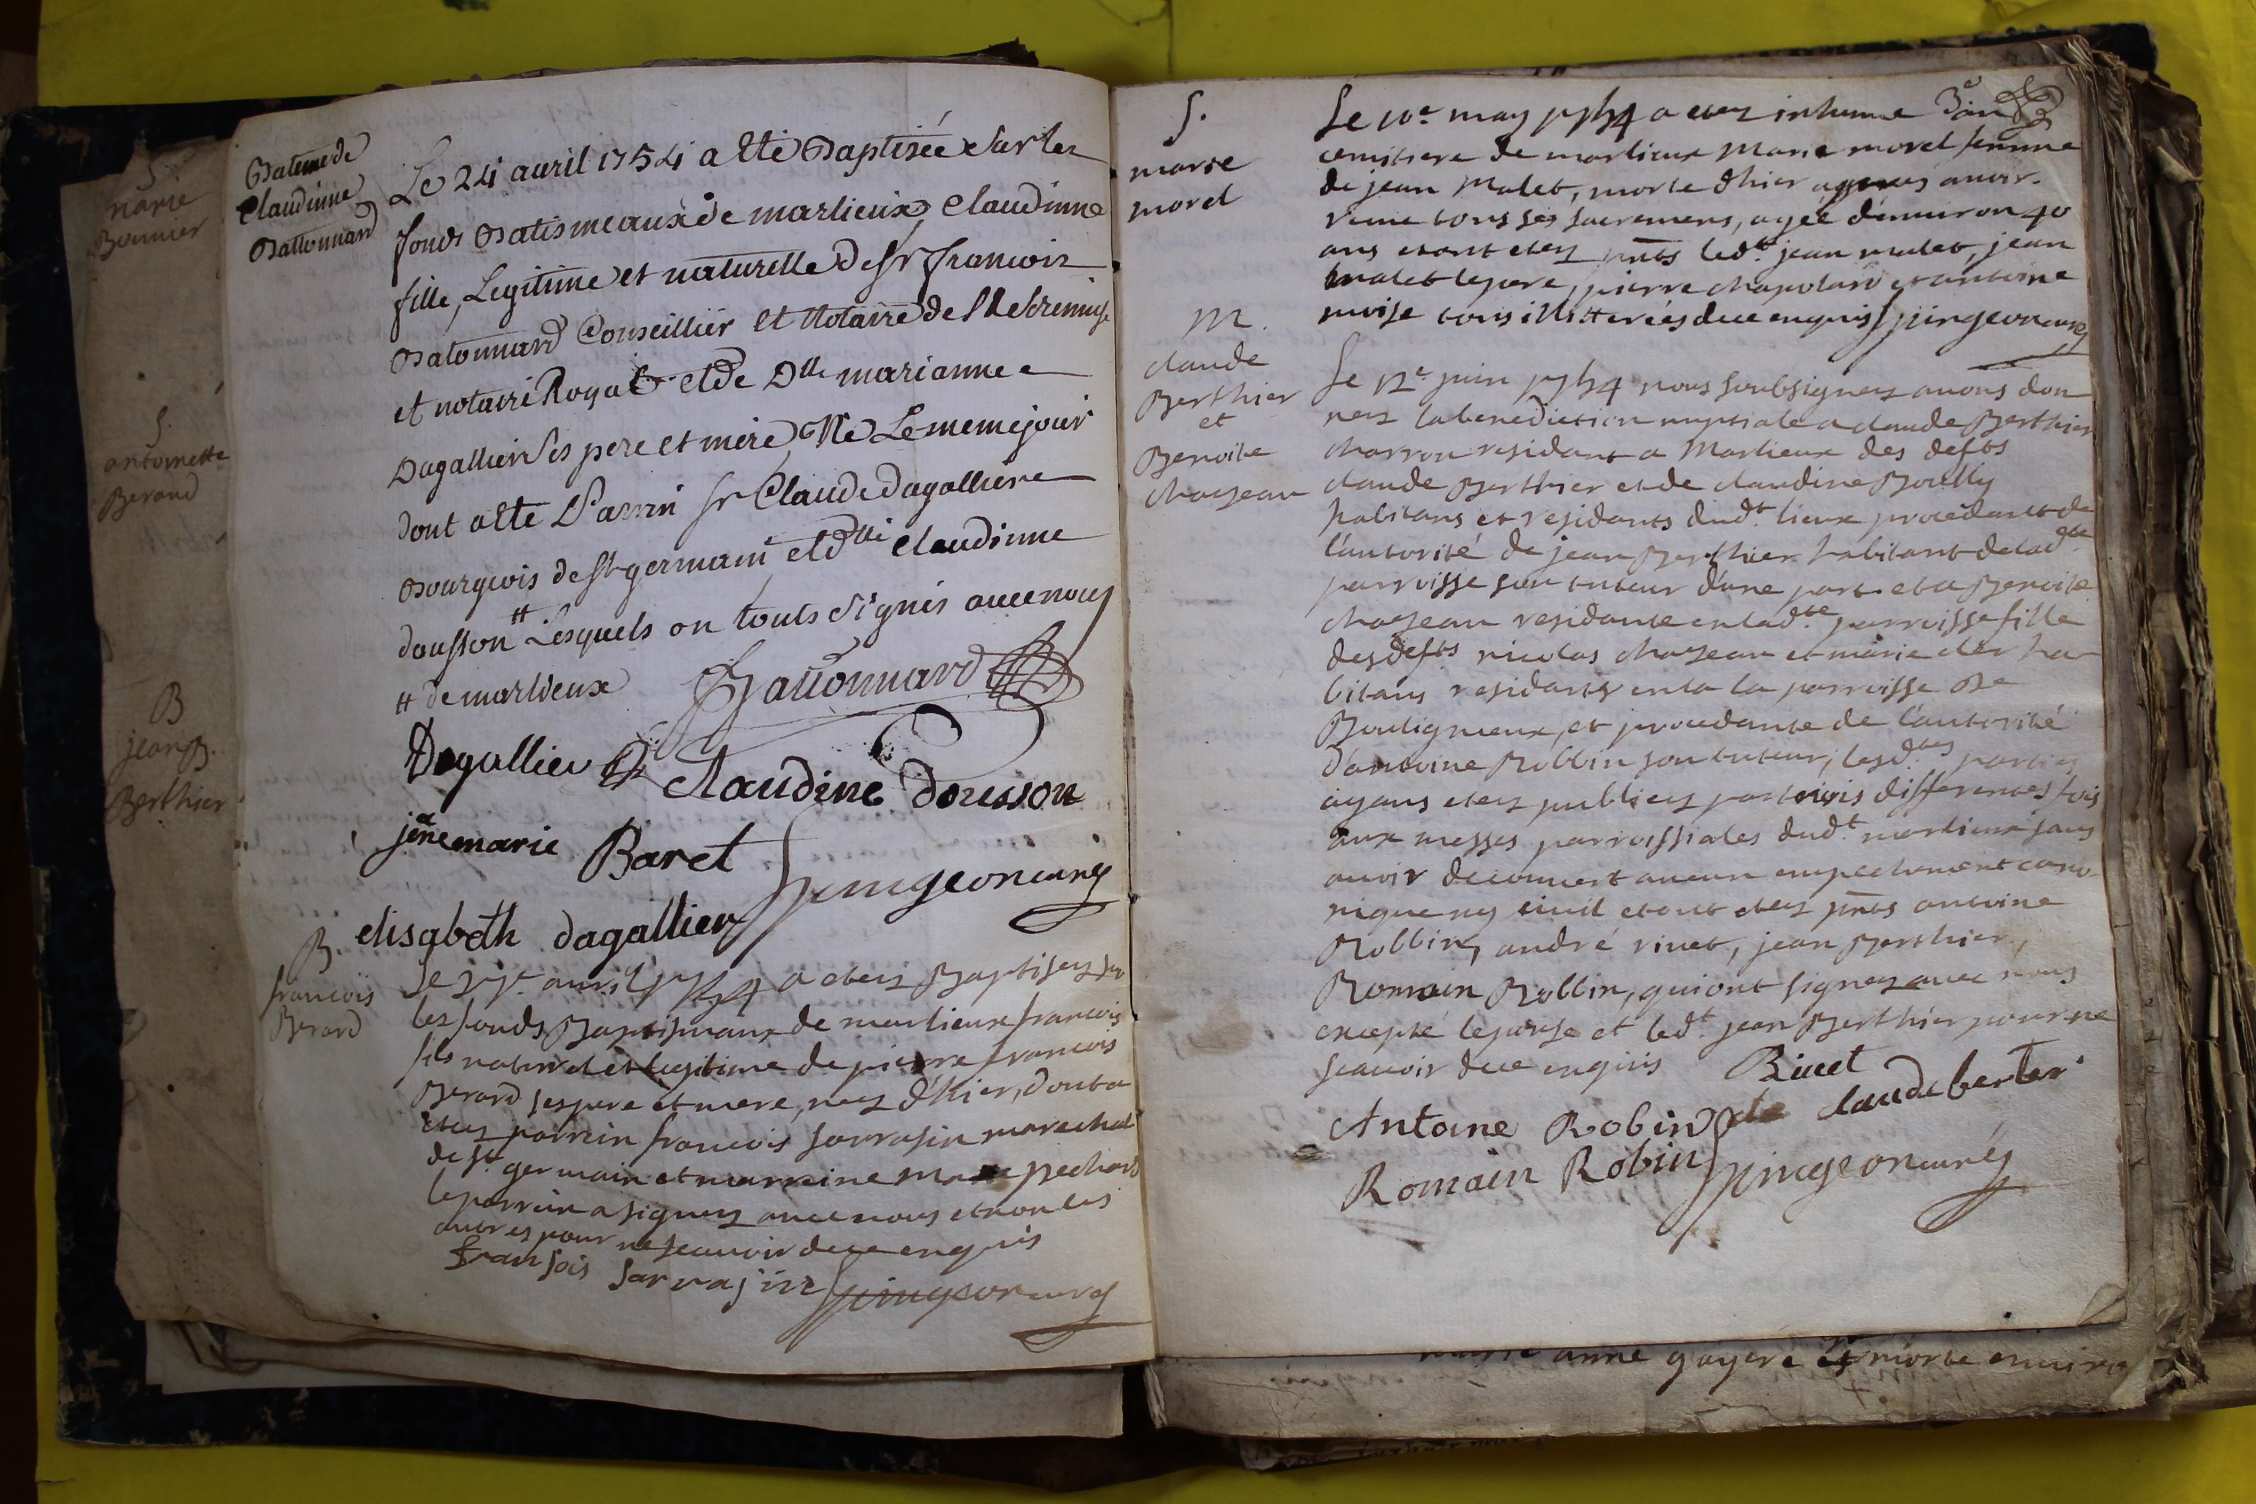 S.
marie
Bonnier
S.
antoinette
Berard
B
jean B.
Berthier
Bateme de
Claudinne
Battonnard
Le 24 auril 1754 a été Baptisée sur les
fonds Batismeaux de marlieux Claudinne
fille, Legitime et naturelle de Sr francois
Batonnard Conseillier et Notaire de
et notaire Royal et de Dlle marianne
Dagallier ses pere et mere Née Le meme jour
dont a été Parrin Sr Claude Dagalliere
Bourgeois de St germain et dlle Claudinne
dousson # Lesquels on touts signés auec nous
# de marlieux Battonnard
Dagallier Claudine dousson
jenemarie Baret
pingeon curé
elisabeth dagallier
B.
francois
Berard
Le auril 1754 a etez Baptisez sur
les fonds Baptismaux de marlieux francois
fils naturel et legitime de pierre francois
Berard ses pere et mere, nez d'hier, dont a
etez parrein francois sarrasin marechal
de St germain et marreine pechard
le parrein a signez auec nous et non les
autres pour ne scauoir de ce enquis
fransois sarrasin pingeon curé
S.
marie
morel
Le may 1754 a etez inhume dans
cemitiere de marlieux Marie morel femme
de jean Malet, morte d'hier apres auoir
receue tous ses sacremens, agée d'enuiron 40
ans etant etez pnts led.t jean malet, jean
malet le pere, pierre chapolard et antoine
moise tous illitterés de ce enquis pingeon curé
M.
claude
Berthier
et
Benoite
chazeau
Le 12e juin 1754 nous soubsignez auons don
nez la benediction nuptiale a claude Berthier
charron residant a Marlieux des deffts
claude Berthier et de claudine Boully
habitans et residants dud.t lieux procedant de
l'autorité de jean Berthier habitant de lad.te
parroisse son tuteur d'une part et a Benoite
chazeau residante en lad.te parroisse fille
des deffts nicolas chazeau et marie cler ha
bitans residants en la la parroisse de
Bouligneux, et procedante de l'autorité
d'antoine Robbin son tuteur, lesd.tes parties
ayans etez publiez par trois differentes fois
aux messes parroissiales dud.t marlieux sans
auoir decouuert aucun empechement cano
nique ny ciuil etant etez pnts antoine
Robbin, andré riuet, jean Berthier,
Romain Robbin, qui ont signez auec nous
excepté l'epouse et led.t jean Berthier pour ne
scauoir de ce enquis Riuet
Antoine Robin claude berter
Romain Robin pingeon curé
anne gayere morte